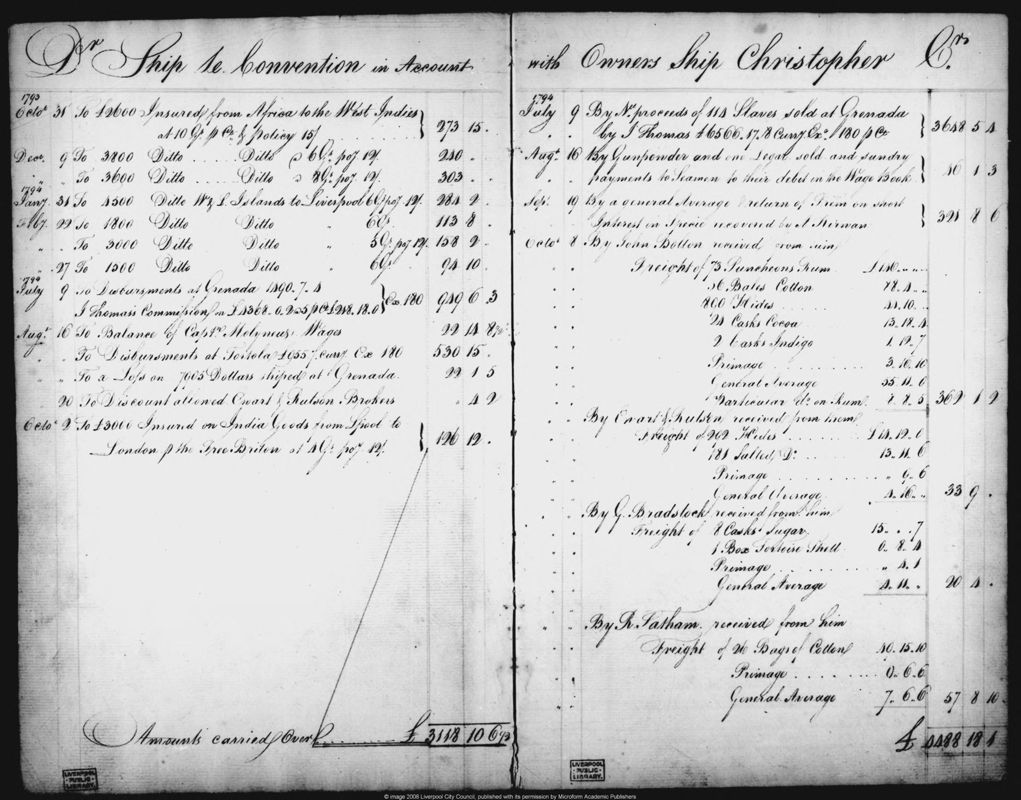 Dr Ship le Convention in Account
1793
Octor 31 To £2600 Insured from Africa to the West Indies
at 10 Gs p Ct & policy 15/ 273 15 .
Decr 9 To 3800 Ditto Ditto 6 Gs poy 12/. 240 .
" " To 3600 Ditto Ditto 8 Gs poy 12/. 303 .
1794
Jany 31 To 4500 Ditto W. I. Islands to Liverpool 6 Gs poy 12/. 284 2 .
Feby 22 To 1800 Ditto Ditto " 6 Gs 113 8 .
" " To 3000 Ditto Ditto " 5 Gs poy 12/. 158 2 .
" 27 To 1500 Ditto Ditto 6 Gs 94 10 .
1794
July 9 To Disbursments at Grenada 1490.7.4
J Thomas's Commission on £4368.0.2 5 p Ct £218.18.0 Ex 180 949 6 3
Augt 16 To Balance of Captn Molyneux Wages 22 14 8
" " To Disbursments at Tortola Curry Ex 180 530 15 .
" " To a Loss on 7605 Dollars shiped at Grenada 22 1 5
20 To Discount allowed Ewart & Rutson Brokers " 4 2
Octor 2 To £3000 Insured on India Goods from Lpool to
London p the Free Briton at 4 Gs poy 12/. 126 12 .
Amounts carried Over £ 3118 10 6
with Owners Ship Christopher Crs
1794
July 9 By Nt proceeds of 114 Slaves sold at Grenada
by J Thomas £6566.17.8 Curry Ex 180 p Ct 3648 5 4
Augt 16 By Gunpowder and one Legar sold and sundry
payments to Seamen to their debit in the Wage Book 16 1 3
Sepr 19 By a general Average & return of Prem on short
Interest in Specie recovered by A Kirwan 321 8 6
Octor 8 By John Bolton received from him
Freight of 73 Puncheons Rum £146 .. ..
56 Bales Cotton 78.4 ..
860 Hides 44.10 ..
24 Casks Cocoa 13.18.4
2 Casks Indigo 1.19.7
Primage 3.16.10
General Average 35.11.6
Particular do on Rum 8.8.5 362 1 2
By Ewart & Rutson received from him
Freight of 262 Hides £14.12.0
181 Salted Do 13.11.6
Primage " 9.6
General Average 4.16 .. 33 9 .
By G. Bradstock received from him
Freight of 8 Casks Sugar 15 . . 7
1 Box Tortoise Shell 0.8.4
Primage " 4.1
General Average 4.11 .. 20 4 .
By R. Tatham received from him
Freight of 26 Bags of Cotton 49.15.10
Primage 0.6.6
General Average 7.6.6 57 8 10
£ 4488 18 1
LIVERPOOL PUBLIC LIBRARY
LIVERPOOL PUBLIC LIBRARY
© image 2008 Liverpool City Council, published with its permission by Microform Academic Publishers